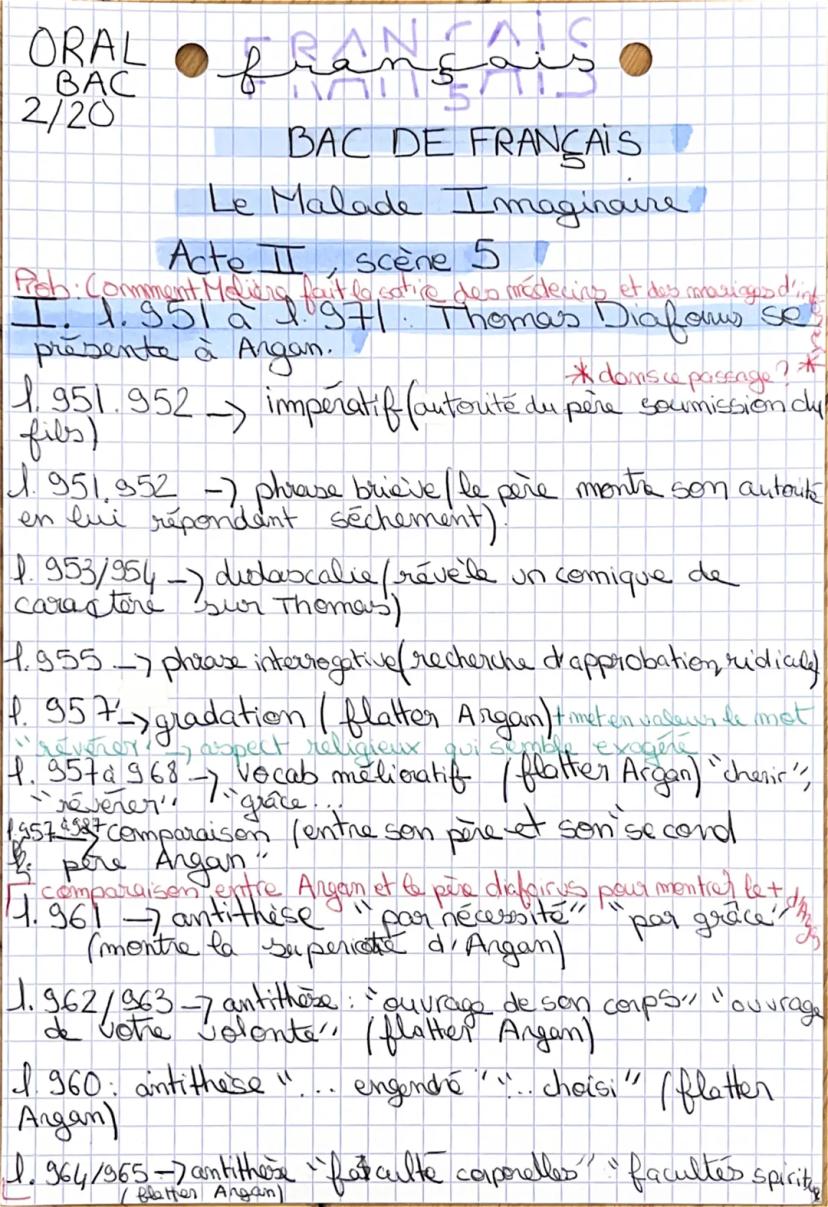 ORAL
BAC
2/20
FRANÇAIS
français
BAC DE FRANÇAIS
Le Malade Imaginaire
Acte II, scène 5
Prob : Comment Molière fait la satire des médecins et des mariages d'int
I. l.951 à l.971. Thomas Diafoirus se
présente à Argan.
* dans ce passage ? *
l. 951.952 → impératif (autorité du père soumission du
fils)
l. 951.952 → phrase brieve (le père montre son autorité
en lui répondant séchement).
l. 953/954 → didascalie (révèle un comique de
caractère sur Thomas)
l.955 → phrase interrogative (recherche d'approbation, ridicule)
l. 957 → gradation (flatter Argan) + met en valeur le mot
"révérer" → aspect religieux qui semble exagéré
l. 957 à 968 → vocab mélioratif (flatter Argan) "cherir",
"révérer" "grâce...
l.957 à 987 → comparaison (entre son père et son "second
père Argan"
[comparaison entre Argan et le père diafoirus pour montrer le +
l. 961 → antithèse "par nécessité" "par grâce"
(montre la superiorité d'Argan)
l. 962/963 → antithèse : "ouvrage de son corps" "ouvrage
de votre volonté" (flatter Argan)
l. 960 : antithèse "... engendré" "... choisi" (flatter
Argan)
l. 964/965 → antithèse "faculté corporelles" "facultés
(flatter Argan)